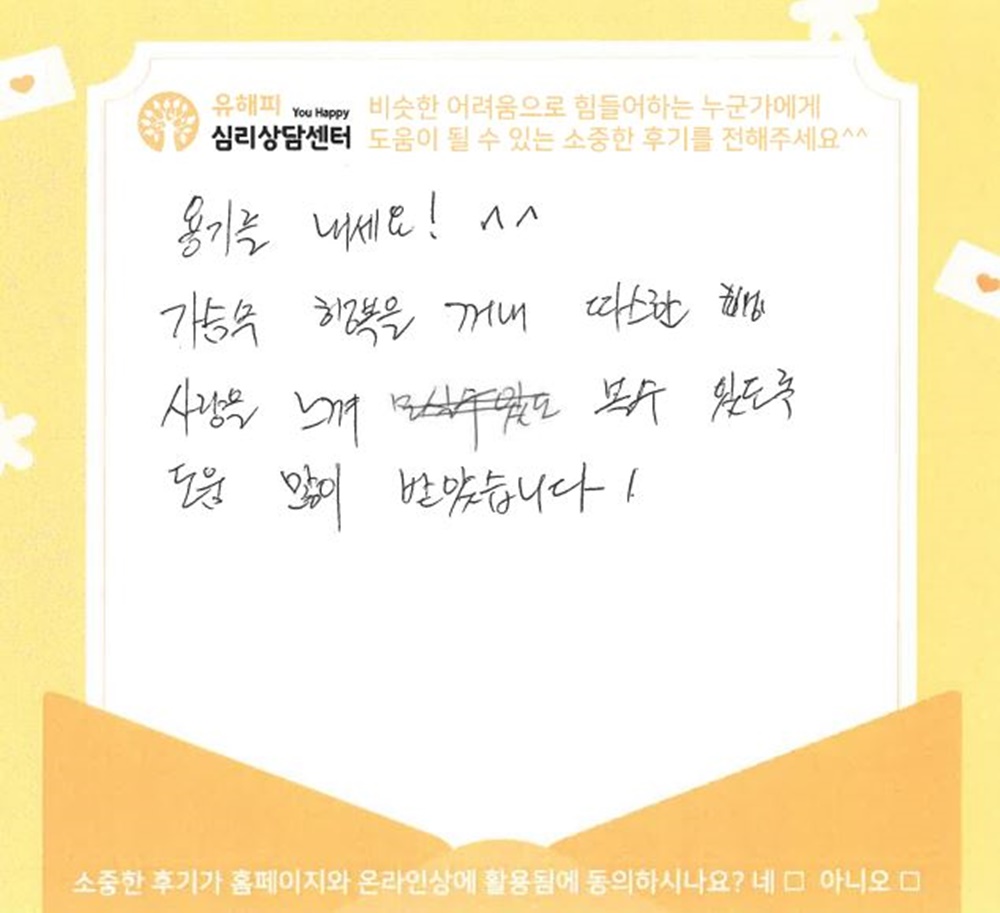 유해피 You Happy
심리상담센터
비슷한 어려움으로 힘들어하는 누군가에게
도움이 될 수 있는 소중한 후기를 전해주세요^^
용기를 내세요! ^^
가슴무 행복을 꺼내 따스한
사랑을 느껴 볼수 있도록
도움 많이 받았습니다!
소중한 후기가 홈페이지와 온라인상에 활용됨에 동의하시나요? 네 □ 아니오 □